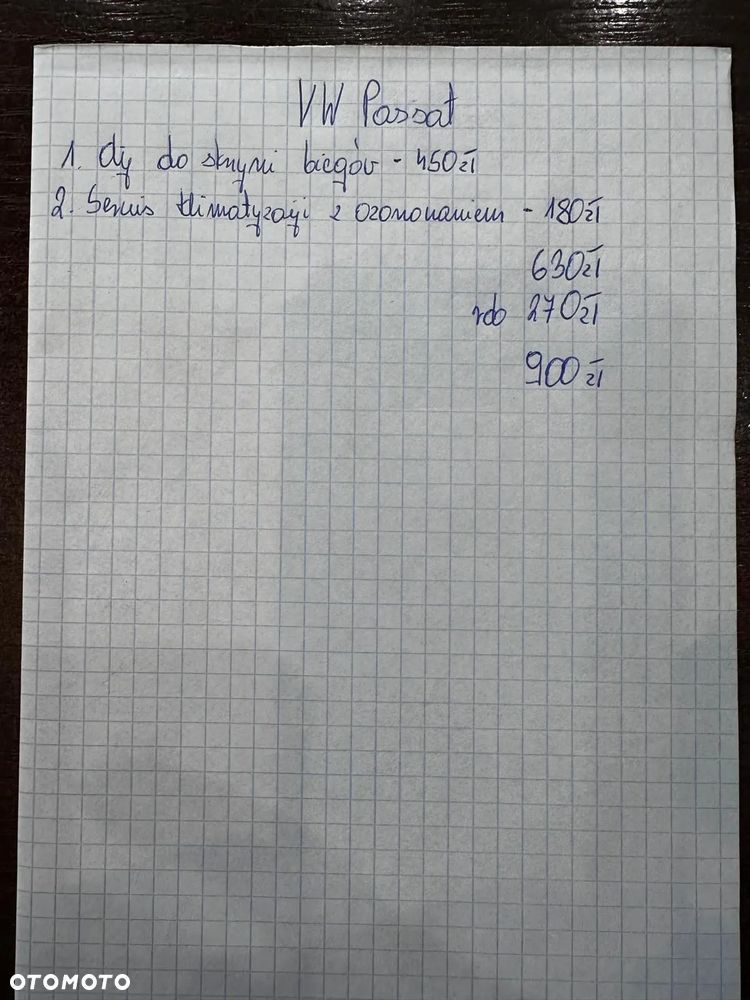 VW Passat
1. Olej do skrzyni biegów - 450zł
2. Serwis klimatyzacji z ozonowaniem - 180zł
630zł
rdo 270zł
900zł
OTOMOTO